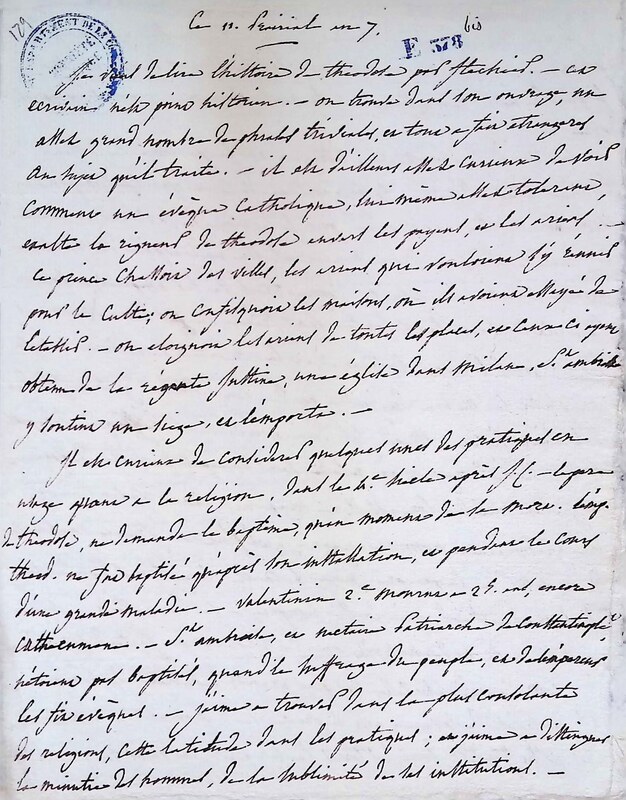 129
Ce 11. Prairial an 7.
bis
E 378
je viens de lire l'histoire de theodose par flechier. — cet
écrivain n'est point historien. — on trouve dans son ouvrage, un
assez grand nombre de phrases triviales, et tout a fait étrangeres
au sujet qu'il traite. — il est d'ailleurs assez curieux de voir
comment un évêque catholique, lui même assez tolerant,
exalte la rigueur de theodose envers les payens, et les ariens. —
ce prince chassoit des villes, les ariens qui vouloient s'y réunir
pour le culte; on confisquoit les maisons, où ils avoient essayé de
l'etablir. — on eloignoit les ariens de toutes les places, et ceux ci ayant
obtenu de la régente justine, une église dans milan, St. ambroise
y soutint un siege, et l'emporta. —
Il est curieux de considerer quelques unes des pratiques en
usage quant a la religion, dans le 4e. siecle après J.C. — le pere
de theodose, ne demanda le baptême, qu'au moment de la mort. l'emp.
theod. ne fut baptisé qu'après son installation, et pendant le cours
d'une grande maladie. — Valentinien 2.e mourut a 25. ans, encore
cathecumene. — St. ambroise, et nectaire patriarche de constantinople
n'étoient pas baptisés, quand le suffrage du peuple, et de l'empereur
les fit évêques. — j'aime a trouver dans la plus consolante
des religions, cette latitude dans les pratiques; et j'aime a distinguer
la minutie des hommes, de la sublimité de ses institutions. —